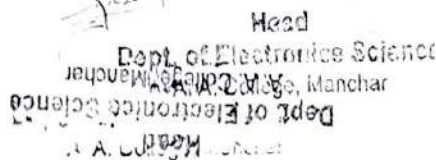 Head
Dept. of Electronics Science
A. A. College, Manchar
Head
Dept of Electronics Science
A. College, Manchar